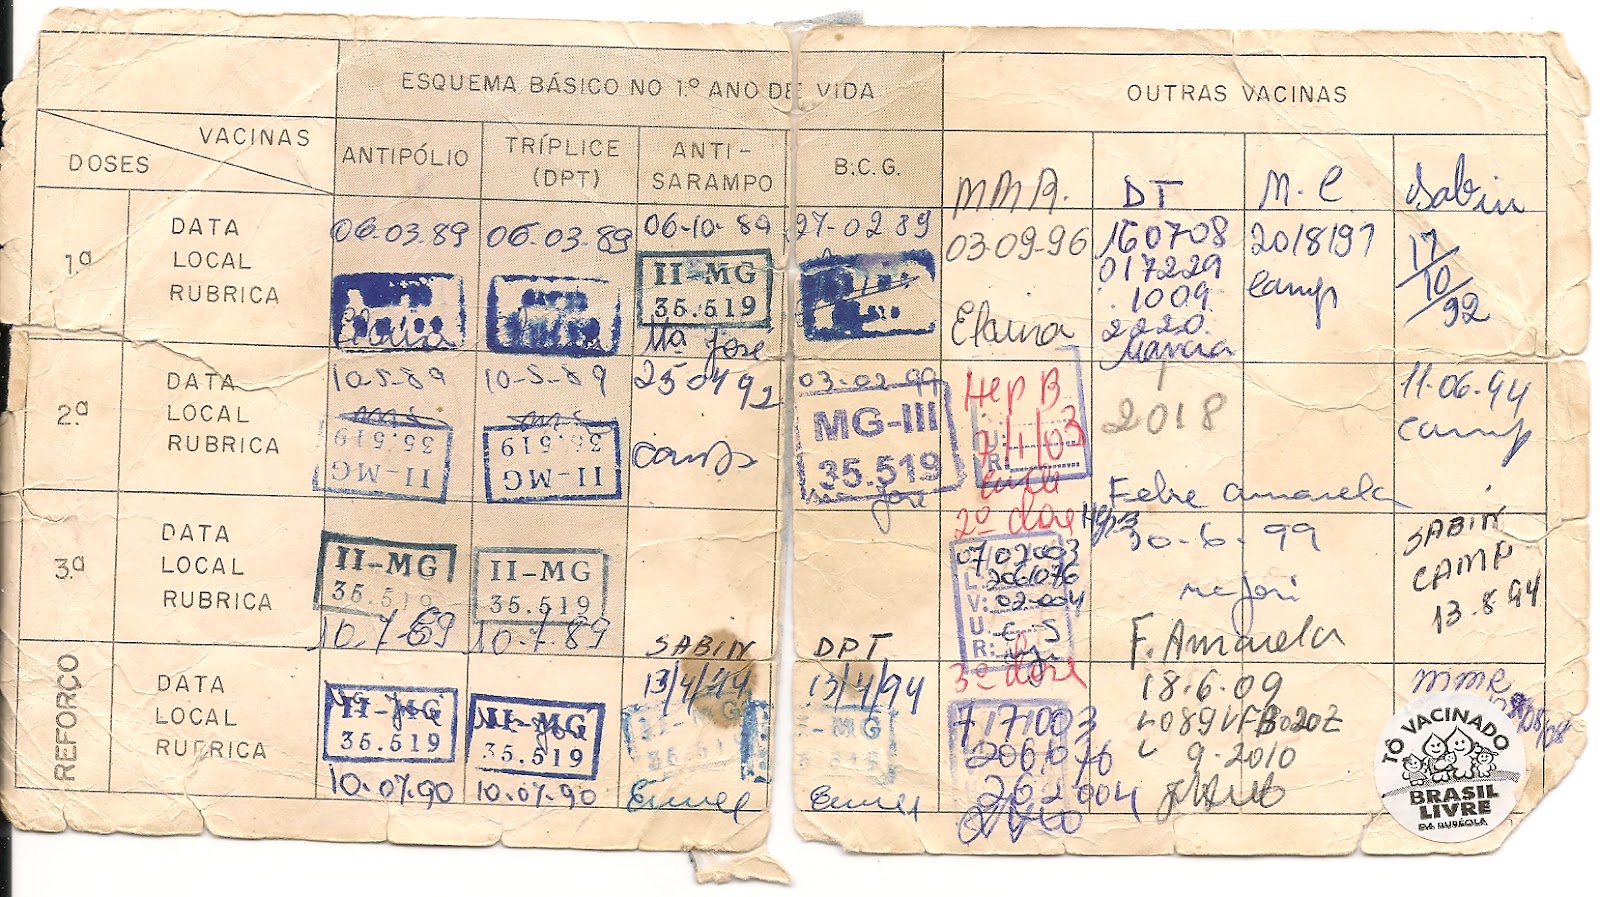 ESQUEMA BÁSICO NO 1.º ANO DE VIDA
OUTRAS VACINAS
VACINAS
DOSES
ANTIPÓLIO
TRÍPLICE
(DPT)
ANTI-
SARAMPO
B.C.G.
MMR.
DT
M.C
Sabin
1.ª
DATA
LOCAL
RUBRICA
06-03.89
06-03.89
06-10-89
II-MG
35.519
Mª José
27-02 89
03-09-96
Elaina
160708
017229
1009
2220
Marcia
2018197
Camp
17/10/92
2.ª
DATA
LOCAL
RUBRICA
10-5-89
II-MG
35.519
10-5-89
II-MG
35.519
250492
03-02-99
MG-III
35.519
José
Hep B
7/1/03
U:
R:
2018
11-06-94
Camp
Febre amarela
2ª dose
Hep B
3.ª
DATA
LOCAL
RUBRICA
II-MG
35.519
10.7.89
II-MG
35.519
10.7.89
07/02003
L:2061076
V:02-004
U:
R:
30-6-99
SABIN
CAMP
13-8-94
F. Amarela
3ª dose
REFORÇO
DATA
LOCAL
RUBRICA
II-MG
35.519
10.07.90
II-MG
35.519
10.07.90
SABIN
13/4/94
DPT
13/4/94
-MG
7171003
2061076
202004
18.6.09
9-2010
MMR
TÔ VACINADO
BRASIL
LIVRE
DA RUBÉOLA